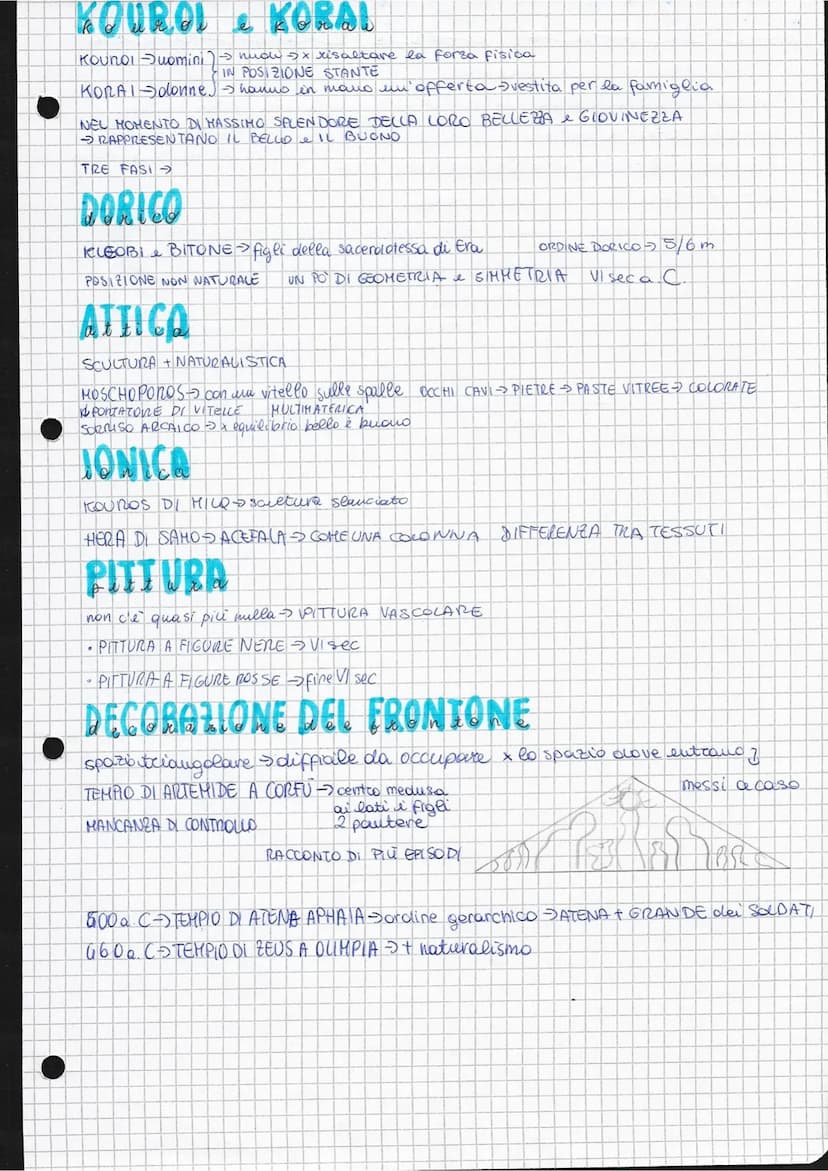 KOUROI e KORAI
KOUROI → uomini } → nudi → x risaltare la forza fisica
IN POSIZIONE STANTE
KORAI → donne → hanno in mano un'offerta → vestita per la famiglia
NEL MOMENTO DI MASSIMO SPLENDORE DELLA LORO BELLEZZA e GIOVINEZZA
→ RAPPRESENTANO IL BELLO e IL BUONO
TRE FASI →
DORICO
dorico
KLEOBI e BITONE → figli della sacerdotessa di Era ORDINE DORICO → 5/6 m
POSIZIONE NON NATURALE UN PO' DI GEOMETRIA e SIMMETRIA VI sec a.C.
ATTICA
attica
SCULTURA + NATURALISTICA
MOSCHOPOROS → con un vitello sulle spalle OCCHI CAVI → PIETRE → PASTE VITREE → COLORATE
↓ PORTATORE DI VITELLI MULTIMATERICA
SORRISO ARCAICO → x equilibrio bello e buono
IONICA
ionica
KOUROS DI MILO → scultura slanciato
HERA DI SAMO → ACEFALA → COME UNA COLONNA DIFFERENZA TRA TESSUTI
PITTURA
pittura
non c'è quasi più nulla → PITTURA VASCOLARE
• PITTURA A FIGURE NERE → VI sec
• PITTURA A FIGURE ROSSE → fine VI sec
DECORAZIONE DEL FRONTONE
decorazione del frontone
spazio triangolare → difficile da occupare x lo spazio dove entrano
messi a caso
TEMPIO DI ARTEMIDE A CORFÙ → centro medusa
ai lati i figli
MANCANZA DI CONTROLLO 2 pantere
RACCONTO DI PIÙ EPISODI
500 a.C → TEMPIO DI ATENA APHAIA → ordine gerarchico → ATENA + GRANDE dei SOLDATI
460 a.C → TEMPIO DI ZEUS A OLIMPIA → + naturalismo